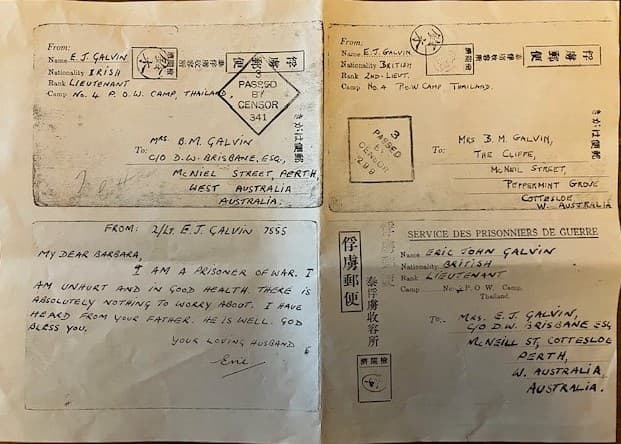 From:
Name E. J. GALVIN
Nationality IRISH
Rank LIEUTENANT
Camp No. 4 P.O.W. CAMP, THAILAND.
俘虜郵便
泰俘虜收容所
3
PASSED
BY
CENSOR
341
きがは便郵
To:
MRS. B.M. GALVIN
C/O D.W. BRISBANE, ESQ.,
McNIEL STREET, PERTH,
WEST AUSTRALIA
AUSTRALIA.
From:
Name E. J. GALVIN
Nationality BRITISH
Rank 2ND-LIEUT.
Camp No. 4 P.O.W CAMP THAILAND.
俘虜郵便
泰俘虜收容所
3
PASSED
BY
CENSOR
299
きがは便郵
To:
MRS B. M. GALVIN,
THE CLIFFE,
McNEIL STREET,
PEPPERMINT GROVE
COTTESLOE
W. AUSTRALIA
FROM: 2/LT. E. J. GALVIN 7555
MY DEAR BARBARA,
I AM A PRISONER OF WAR. I
AM UNHURT AND IN GOOD HEALTH. THERE IS
ABSOLUTELY NOTHING TO WORRY ABOUT. I HAVE
HEARD FROM YOUR FATHER. HE IS WELL. GOD
BLESS YOU.
YOUR LOVING HUSBAND
Eric
SERVICE DES PRISONNIERS DE GUERRE
俘虜郵便
俘虜郵便
泰俘虜收容所
Name ERIC JOHN GALVIN
Nationality BRITISH
Rank LIEUTENANT
Camp P. O. W. Camp,
Thailand.
To:- MRS. E. J. GALVIN,
C/O D.W. BRISBANE ESQ
McNEILL ST, COTTESLOE
PERTH,
W. AUSTRALIA,
AUSTRALIA.